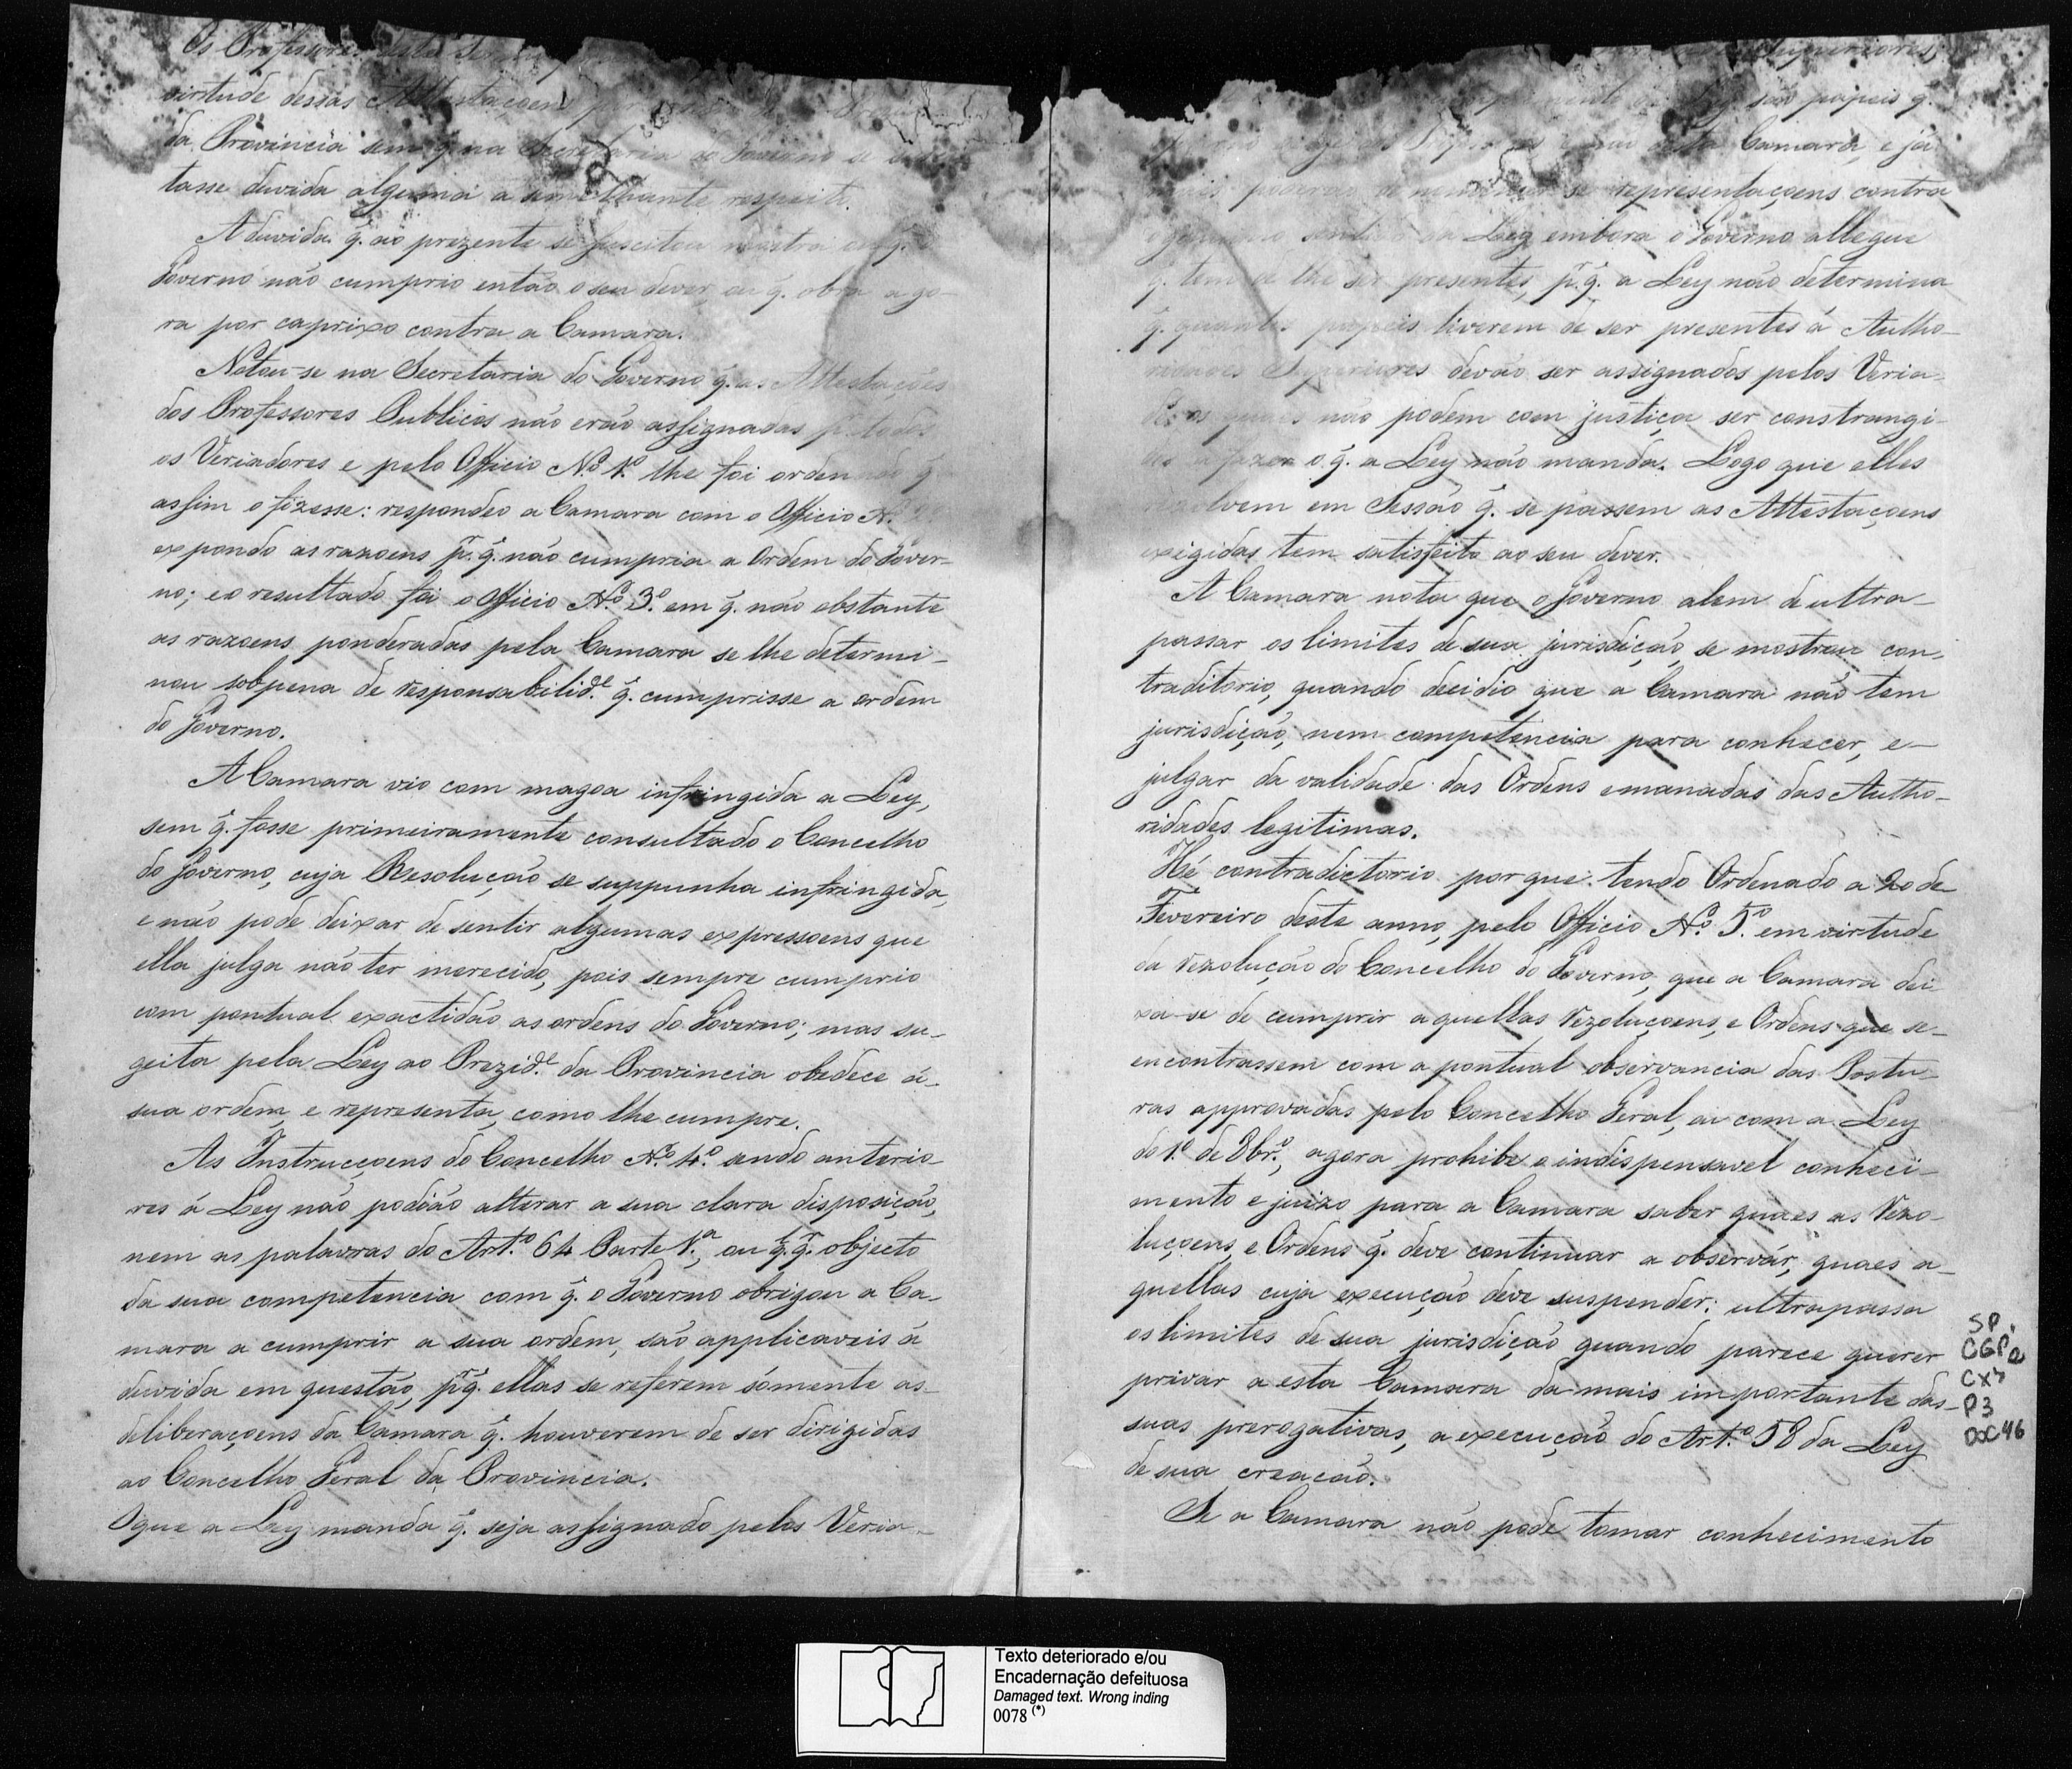 Os Professores
virtude dessas Attestaçoens
da Provincia sem q̃. na Secretaria do Governo se
tasse duvida alguma a similhante respeito.
A duvida q̃. ao prezente se suscitou mostra ou q̃. o
Governo não cumprio então o seu dever, ou q̃. obra ago-
ra por caprixo contra a Camara.
Notou-se na Secretaria do Governo q̃. as Attestações
dos Professores Publicos não erão assignadas p. todos
os Veriadores e pelo Officio Nº. 1º. lhe foi ordenado q̃
assim o fizesse: respondeo a Camara com o Officio N.
expondo as razoens p.r q̃. não cumpria a Ordem do Gover-
no; e o resultado foi o Officio Nº. 3º. em q̃. não obstante
as razoens ponderadas pela Camara se lhe determi-
nou sobpena de responsabilid.e q̃. cumprisse a ordem
do Governo.
A Camara vio com magoa infringida a Ley,
sem q̃. fosse primeiramente consultado o Concelho
do Governo, cuja Resolução se suppunha infringida,
e não pode deixar de sentir algumas expressoens que
ella julga não ter merecido, pois sempre cumprio
com pontual exactidão as ordens do Governo; mas su-
geita pela Ley ao Prezid.e da Provincia obedece á
sua ordem, e representa, como lhe cumpre.
As Instrucçoens do Concelho Nº. 4º. sendo anterio-
res á Ley não podião alterar a sua clara disposição,
nem as palavras do Art.º 64 Parte 1.ª, ou q̃.q.r objecto
da sua competencia com q̃. o Governo obrigou a Ca-
mara a cumprir a sua ordem, são applicaveis á
duvida em questão, p.r q̃. ellas se referem sómente as
deliberaçoens da Camara q̃. houverem de ser dirigidas
ao Concelho Geral da Provincia.
O que a Ley manda q̃. seja assignado pelos Veria-
Superiores,
são papeis q̃.
Camara, e já
mais poderão denominar se representaçoens contra
o genuino sentido da Ley embora o Governo allegue
q̃. tem de lhe ser presentes, p.r q̃. a Ley não determina
q̃. quantos papeis tiverem de ser presentes á Autho-
ridades Superiores devão ser assignados pelos Veria-
dores, os quaes não podem com justiça ser constrangi-
dos a fazer o q̃. a Ley não manda. Logo que elles
resolvem em Sessão q̃. se passem as Attestaçoens
exigidas tem satisfeito ao seu dever.
A Camara nota que o Governo alem de ultra-
passar os limites de sua jurisdição, se mostrou con-
traditorio, quando decidio que a Camara não tem
jurisdição, nem competencia para conhecer, e
julgar da validade das Ordens emanadas das Autho-
ridades legitimas.
Hé contradictorio porque tendo Ordenado a 20 de
Fevereiro deste anno, pelo Officio Nº. 5º. em virtude
da rezolução do Concelho do Governo, que a Camara dei-
xa-se de cumprir aquellas rezoluçoens, e Ordens que se
encontrassem com a pontual observancia das Postu-
ras approvadas pelo Concelho Geral, ou com a Ley
do 1º. de 8br.º, agora prohibe o indispensavel conheci-
mento e juizo para a Camara saber quaes as rezo-
luçoens, e Ordens q̃. deve continuar a observár, quaes a-
quellas cuja execução deve suspender: ultrapassa
os limites de sua jurisdição quando parece querer
privar a esta Camara da mais importante das
suas prerogativas, a execução do Art.º 58 da Ley
de sua creacão.
Se a Camara não pode tomar conhecimento
SP.
CGP
CX7
P3
DOC46
Texto deteriorado e/ou
Encadernação defeituosa
Damaged text. Wrong inding
0078 (*)